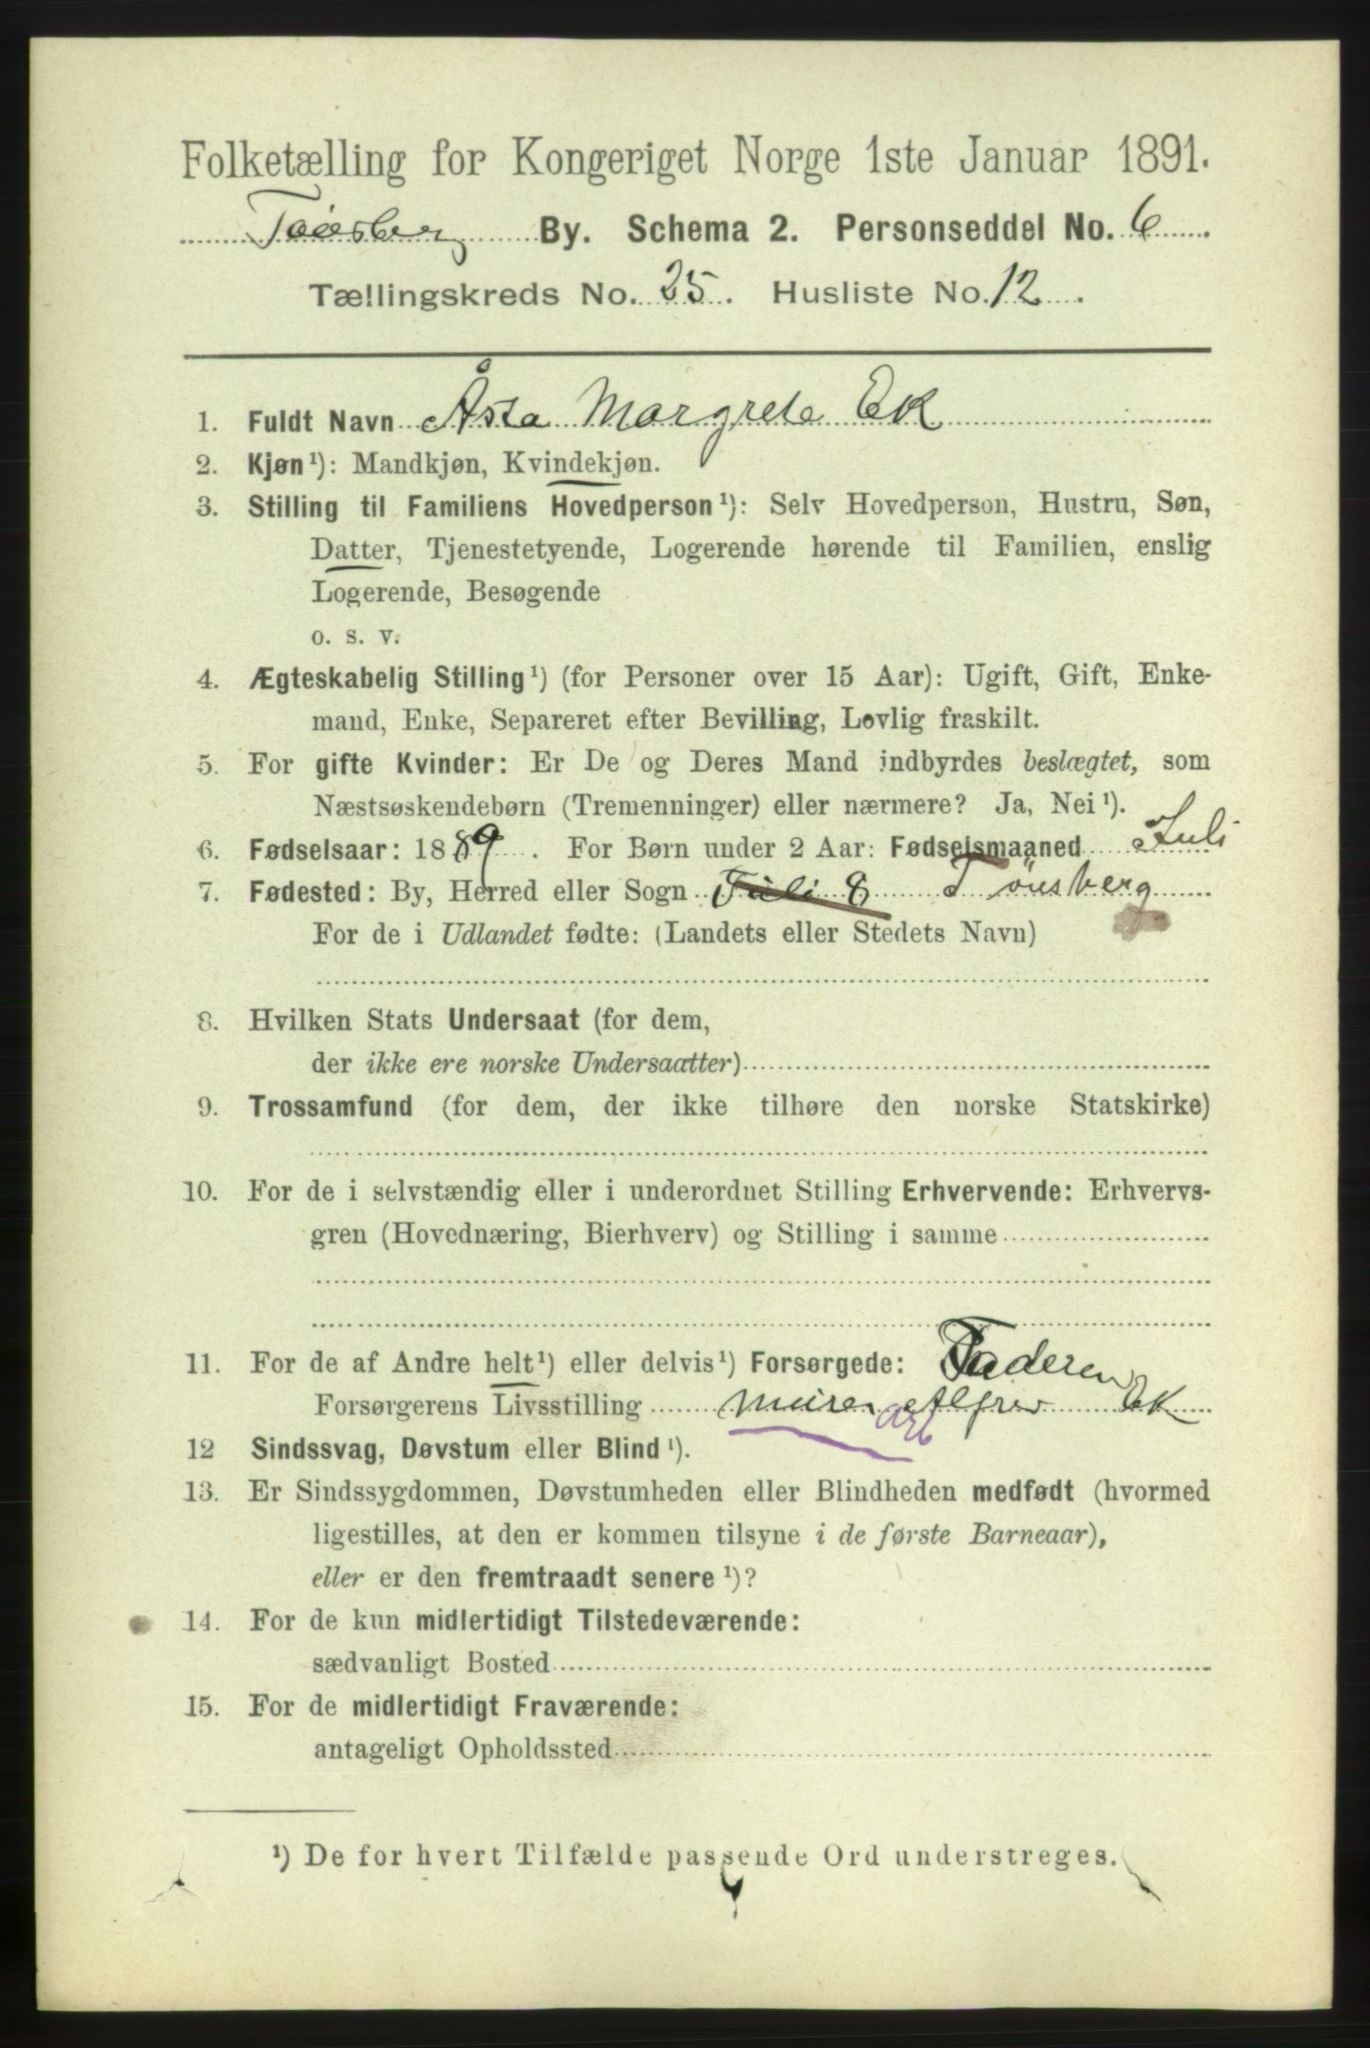 Folketælling for Kongeriget Norge 1ste Januar 1891.
Tønsberg By. Schema 2. Personseddel No. 6
Tællingskreds No. 25. Husliste No. 12.
1. Fuldt Navn Åsta Margrete Ek
2. Kjøn¹): Mandkjøn, Kvindekjøn.
3. Stilling til Familiens Hovedperson¹): Selv Hovedperson, Hustru, Søn,
Datter, Tjenestetyende, Logerende hørende til Familien, enslig
Logerende, Besøgende
o. s. v.
4. Ægteskabelig Stilling¹) (for Personer over 15 Aar): Ugift, Gift, Enke-
mand, Enke, Separeret efter Bevilling, Lovlig fraskilt.
5. For gifte Kvinder: Er De og Deres Mand indbyrdes beslægtet, som
Næstsøskendebørn (Tremenninger) eller nærmere? Ja, Nei¹).
6. Fødselsaar: 1889. For Børn under 2 Aar: Fødselsmaaned Juli
7. Fødested: By, Herred eller Sogn Juli 8 Tønsberg
For de i Udlandet fødte: (Landets eller Stedets Navn)
8. Hvilken Stats Undersaat (for dem,
der ikke ere norske Undersaatter)
9. Trossamfund (for dem, der ikke tilhøre den norske Statskirke)
10. For de i selvstændig eller i underordnet Stilling Erhvervende: Erhvervs-
gren (Hovednæring, Bierhverv) og Stilling i samme
11. For de af Andre helt¹) eller delvis¹) Forsørgede: Faderen
Forsørgerens Livsstilling murer Alfred Ek
arb
12 Sindssvag, Døvstum eller Blind¹).
13. Er Sindssygdommen, Døvstumheden eller Blindheden medfødt (hvormed
ligestilles, at den er kommen tilsyne i de første Barneaar),
eller er den fremtraadt senere¹)?
14. For de kun midlertidigt Tilstedeværende:
sædvanligt Bosted
15. For de midlertidigt Fraværende:
antageligt Opholdssted
¹) De for hvert Tilfælde passende Ord understreges.